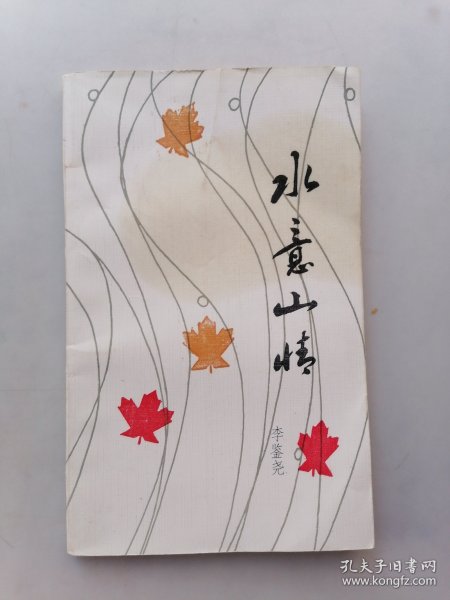 水意山情
李鉴尧
孔夫子旧书网
www.kongfz.com